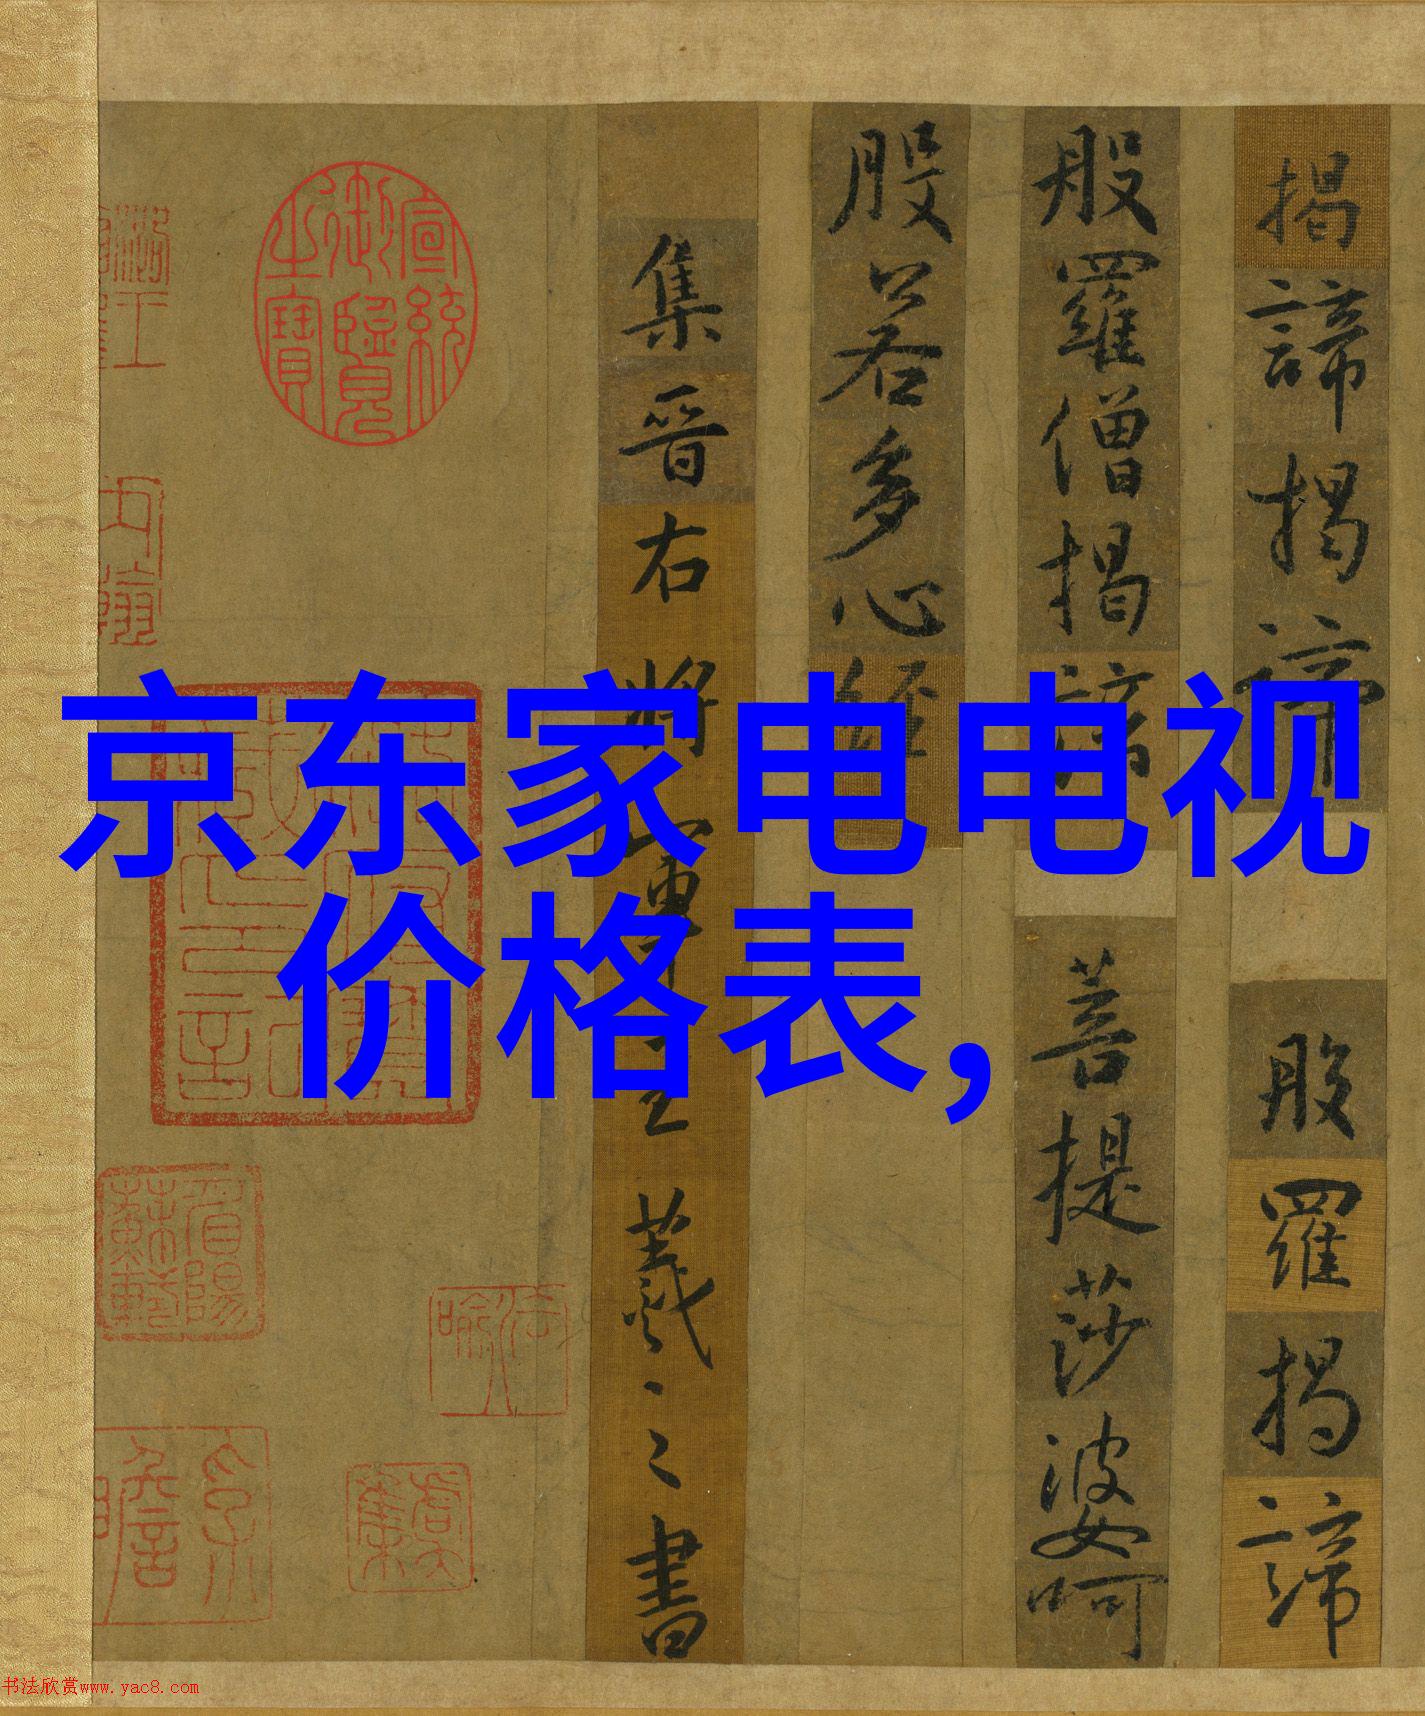 京东家电电视
价格表,
揭諦揭諦般羅揭諦
般羅僧揭諦菩提莎婆呵
般若多心經
集晉右將軍王羲之書
宣統御覽之寶
书法欣赏www.yac8.com